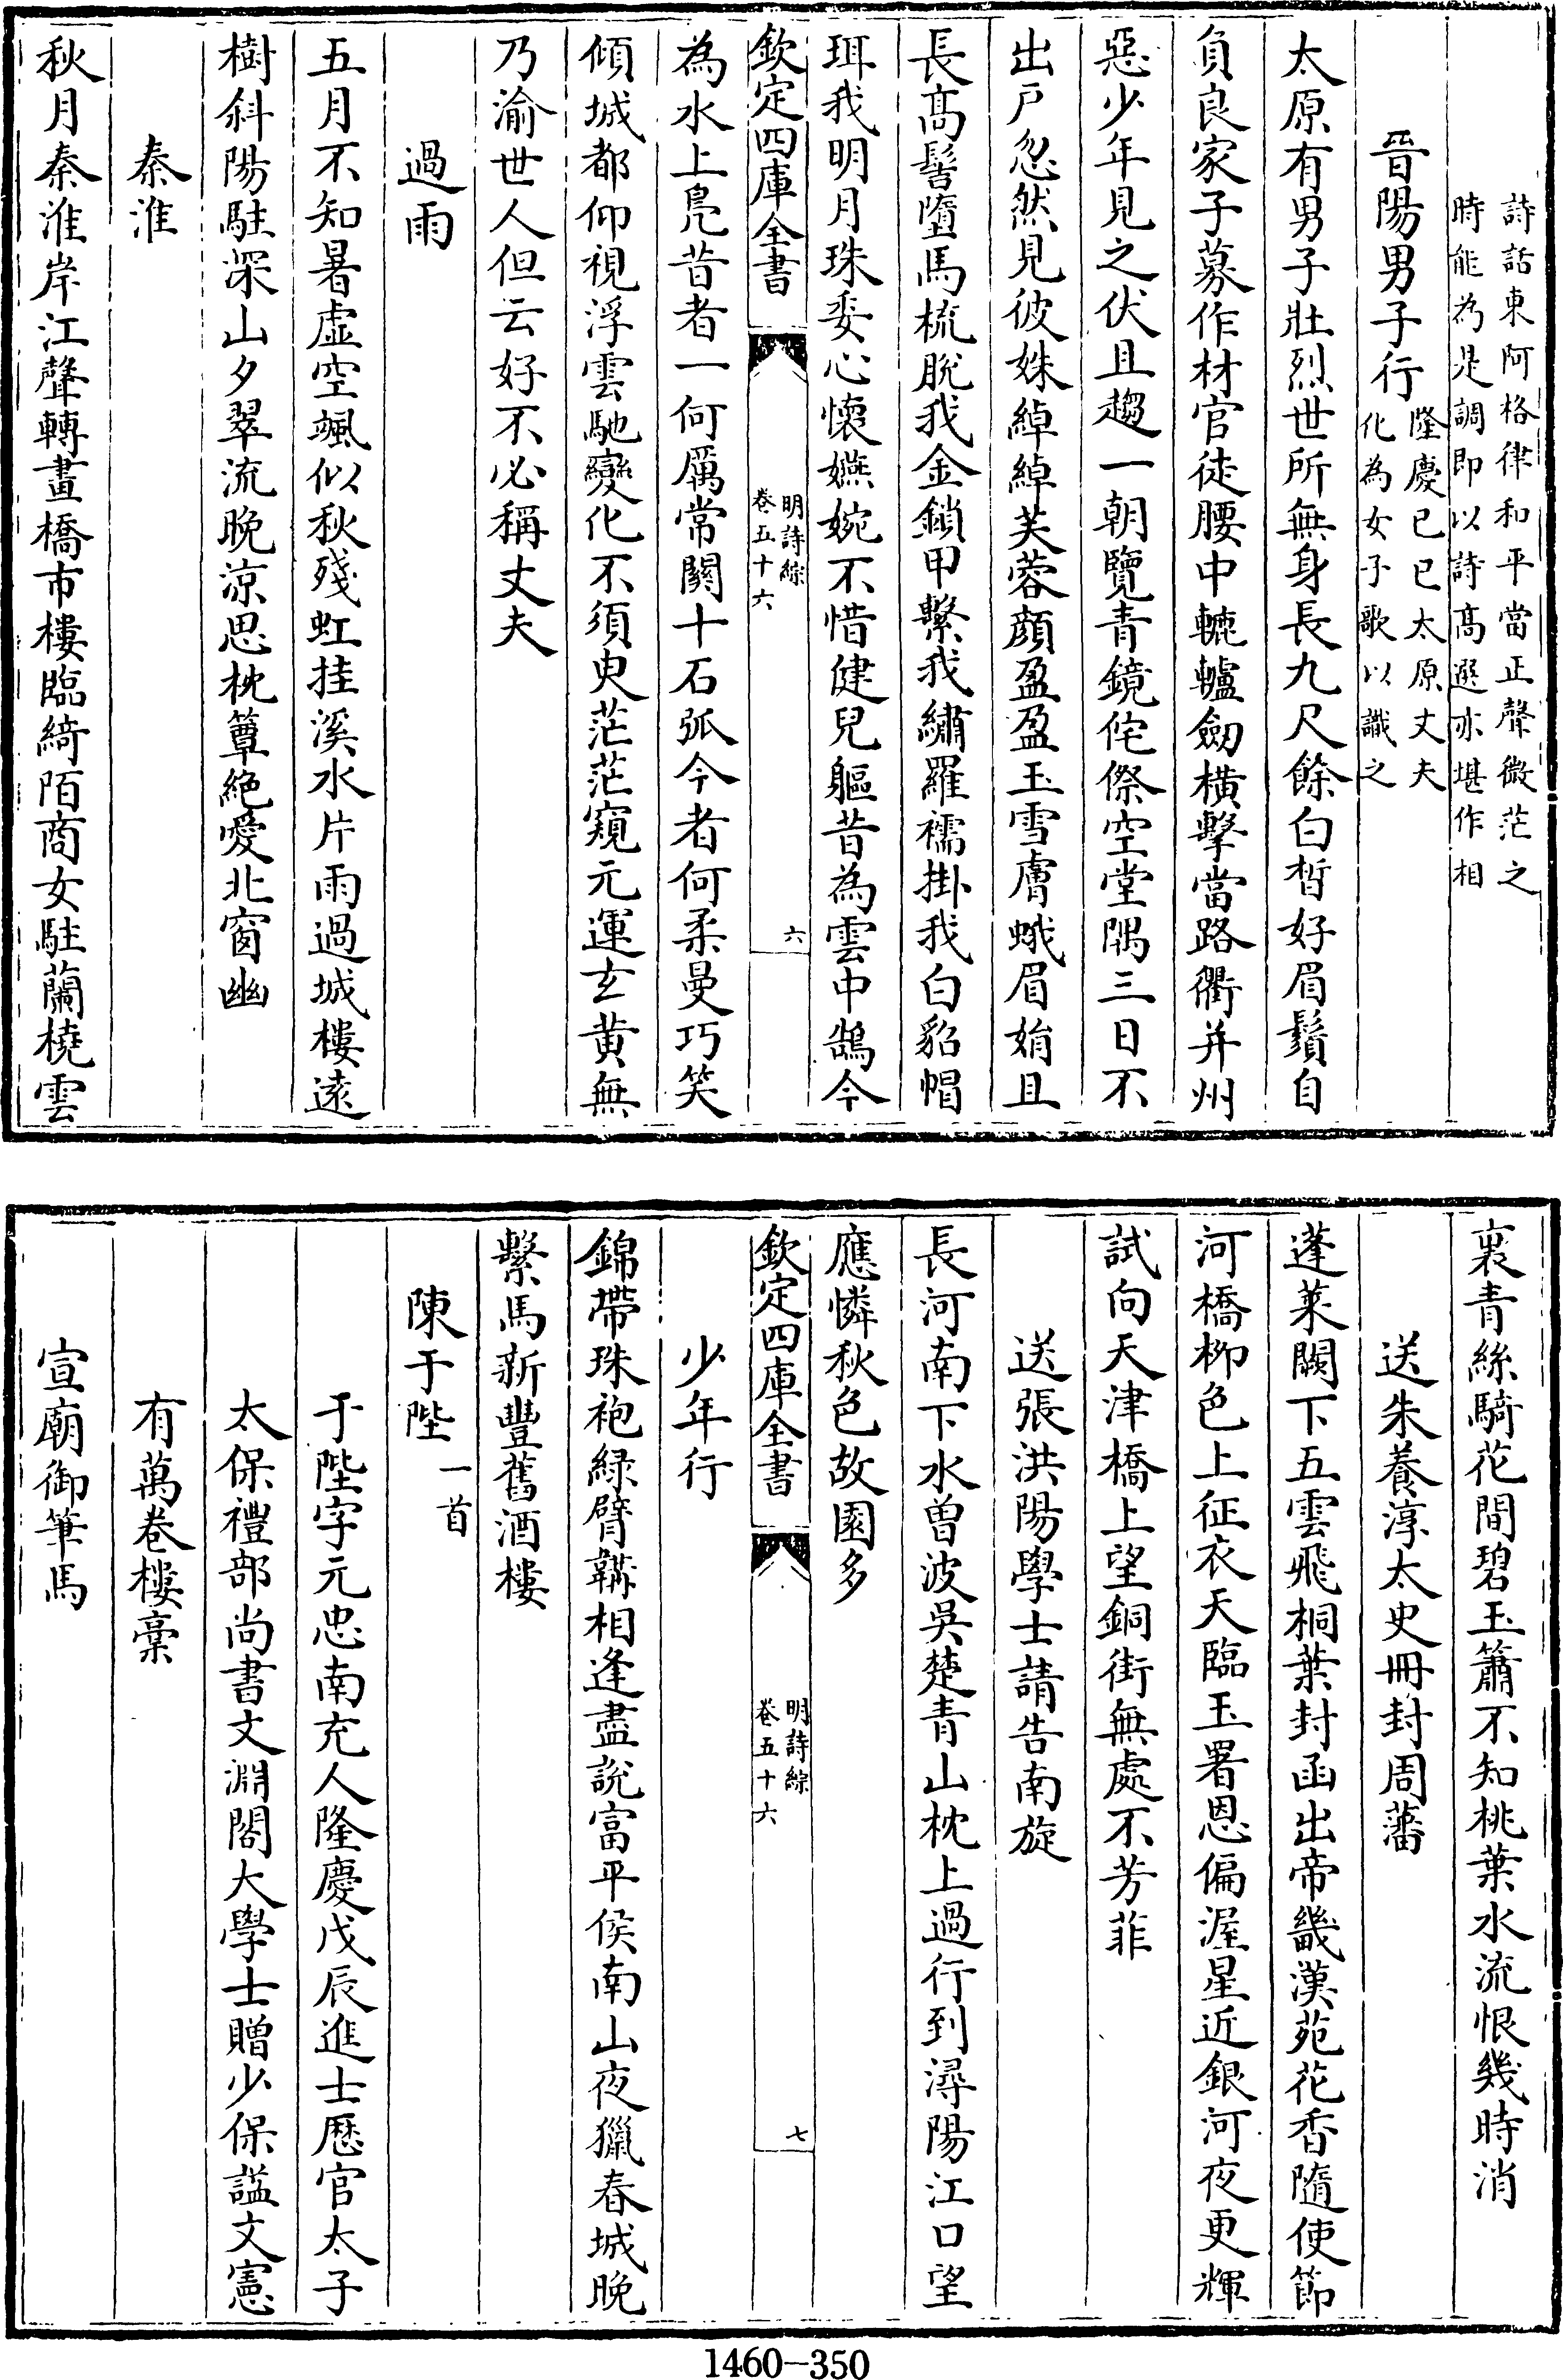 詩話東阿格律和平當正聲微茫之
時能為是調即以詩髙選亦堪作相
晉陽男子行隆慶己巳太原丈夫
化為女子歌以識之
太原有男子壯烈世所無身長九尺餘白晳好眉鬚自
負良家子募作材官徒腰中轆轤劒橫擊當路衢并州
惡少年見之伏且趨一朝覽青鏡侘傺空堂隅三日不
出戸忽然見彼姝綽綽芙蓉顔盈盈玉雪膚蛾眉娟且
長髙髻墮馬梳脫我金鎖甲繫我繡羅襦掛我白貂帽
珥我明月珠委心懷嬿婉不惜健兒軀昔為雲中鵠今
欽定四庫全書
明詩綜
卷五十六
六
為水上鳧昔者一何厲常關十石弧今者何柔曼巧笑
傾城都仰視浮雲馳變化不須臾茫茫窺元運玄黄無
乃渝世人但云好不必稱丈夫
過雨
五月不知暑虚空颯似秋殘虹挂溪水片雨過城樓逺
樹斜陽駐深山夕翠流晩涼思枕簟絶愛北窗幽
秦淮
秋月秦淮岸江聲轉畫橋市樓臨綺陌商女駐蘭橈雲
裏青絲騎花間碧玉簫不知桃葉水流恨幾時消
送朱養淳太史冊封周藩
蓬萊闕下五雲飛桐葉封函出帝畿漢苑花香隨使節
河橋栁色上征衣天臨玉署恩偏渥星近銀河夜更輝
試向天津橋上望銅街無處不芳菲
送張洪陽學士請告南旋
長河南下水曽波吳楚青山枕上過行到潯陽江口望
應憐秋色故園多
欽定四庫全書
明詩綜
卷五十六
七
少年行
錦帶珠袍緑臂韝相逢盡說富平侯南山夜獵春城晩
繫馬新豐舊酒樓
陳于陛一首
于陛字元忠南充人隆慶戊辰進士歴官太子
太保禮部尚書文淵閣大學士贈少保諡文憲
有萬卷樓稾
宣廟御筆馬
1460-350